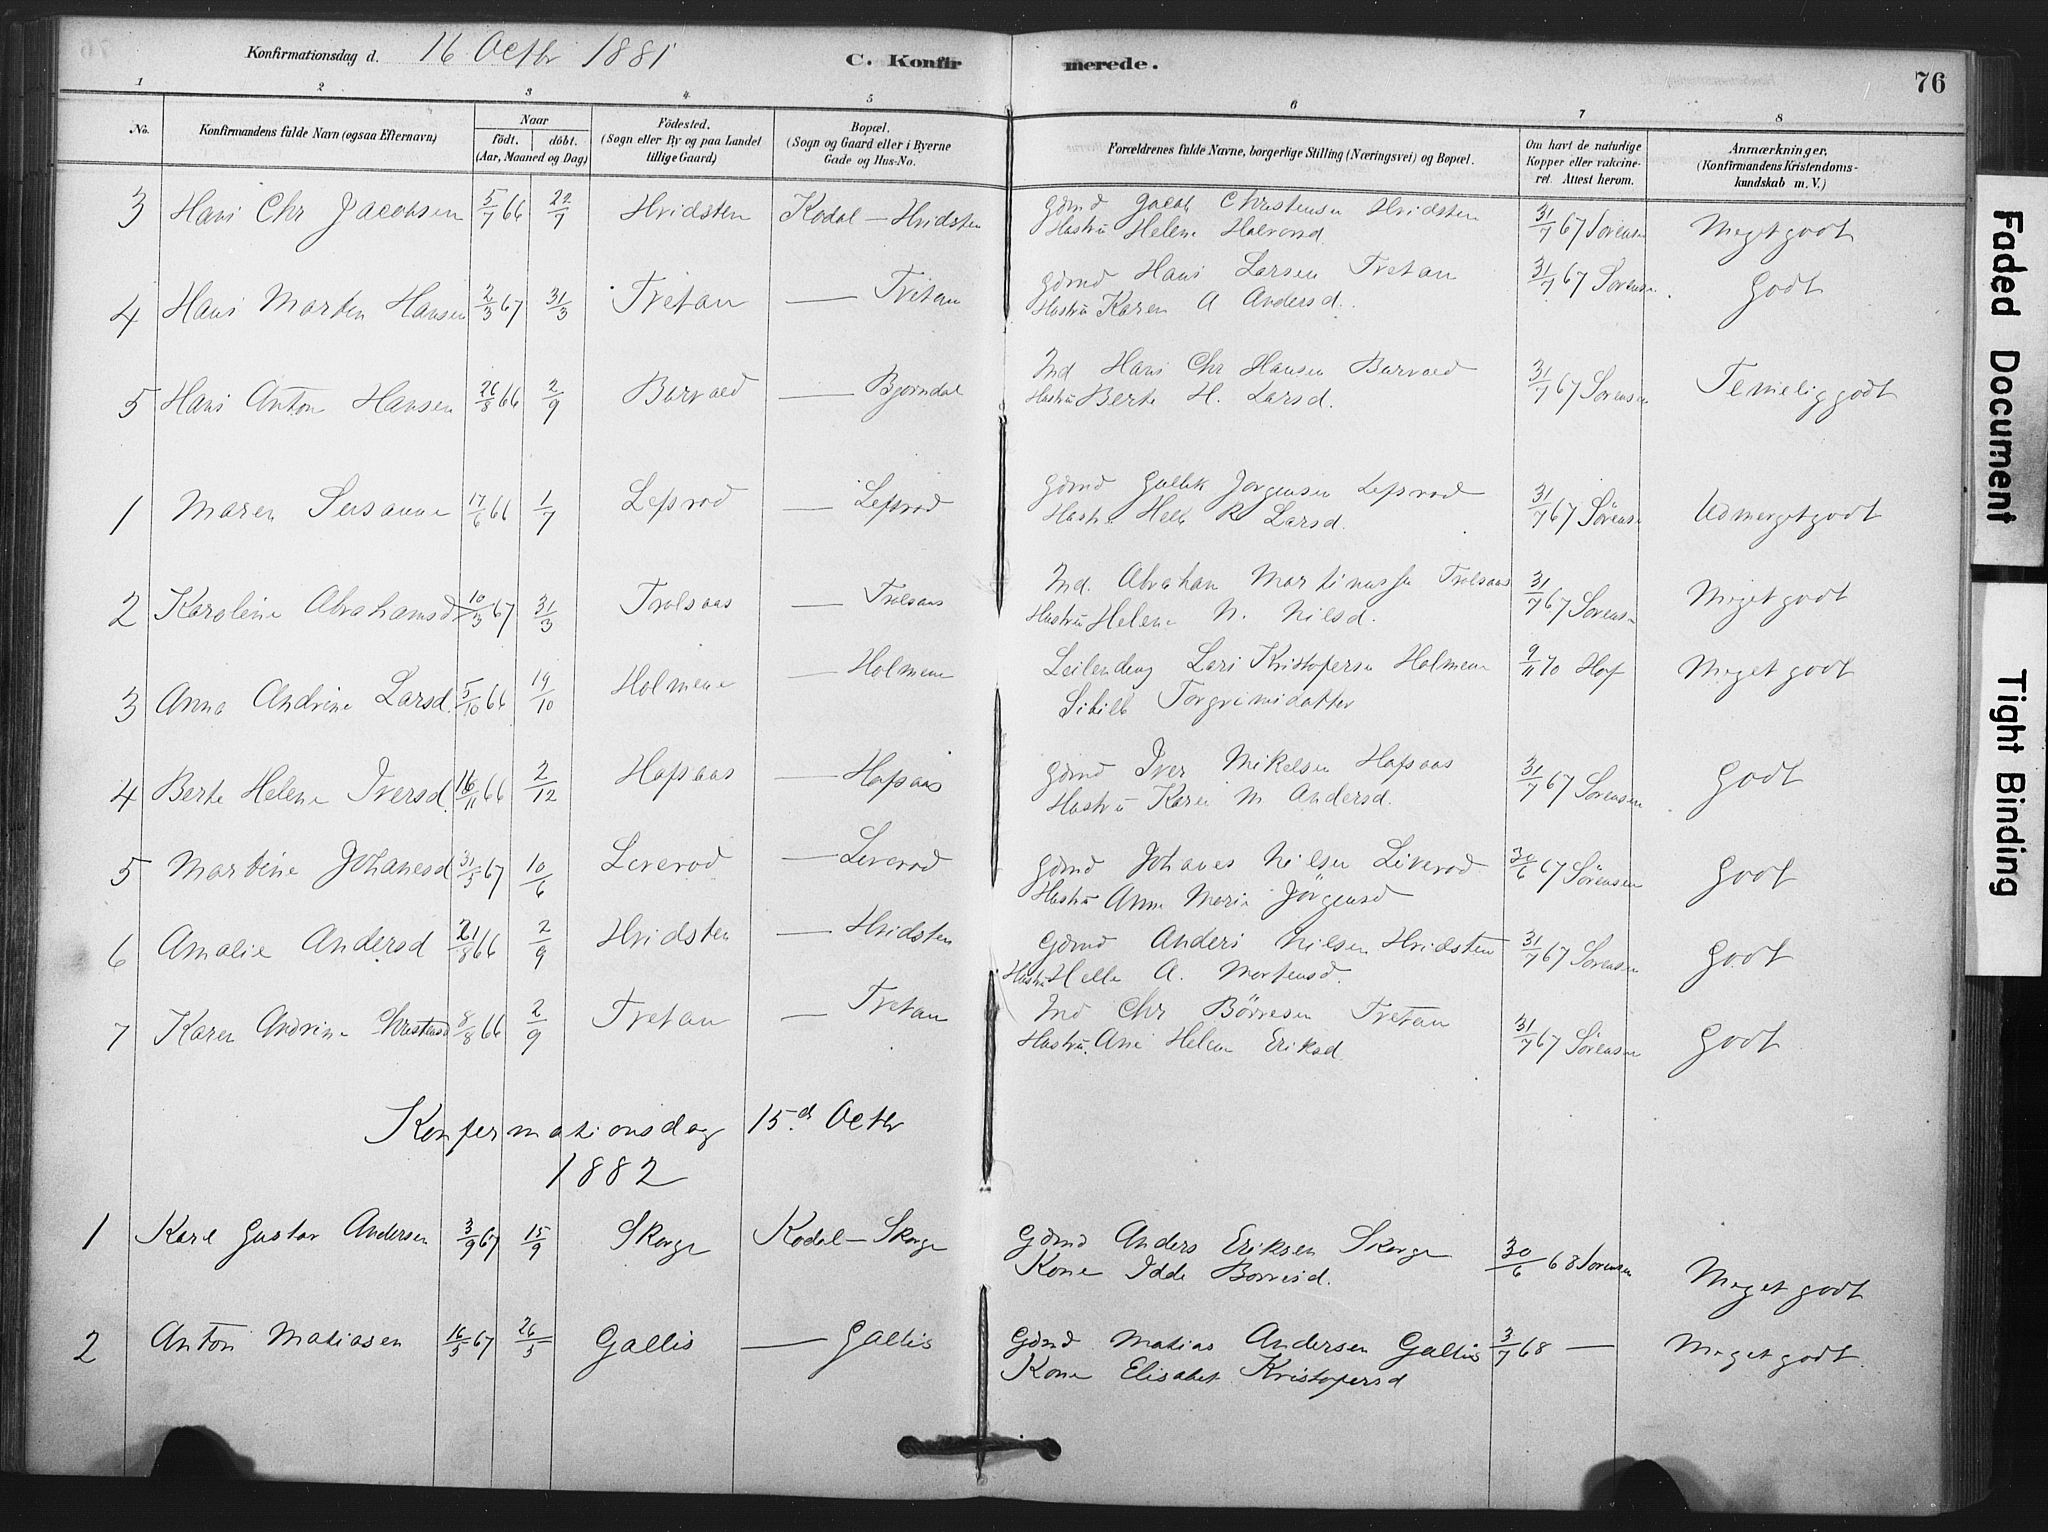 Konfirmationsdag d. 16 Octbr 1881 C. Konfirmerede. 76
1 2 3 4 5 6 7 8
No. Konfirmandens fulde Navn (ogsaa Efternavn) Naar födt. döbt. (Aar, Maaned og Dag) Födested. (Sogn eller By og paa Landet tillige Gaard) Bopæl. (Sogn og Gaard eller i Byerne Gade og Hus-No. Forældrenes fulde Navne, borgerlige Stilling (Næringsvei) og Bopæl. Om havt de naturlige Kopper eller vakcineret. Attest herom. Anmærkninger, (Konfirmandens Kristendomskundskab m. V.)
3 Hans Chr Jacobsen 5/7 66 22/9 Hvidsten Kodal — Hvidsten Gdmd Jacob Christensen Hvidsten 31/7 67 Sørensen Meget godt
Hustru Helene Halvorsd.
4 Hans Marten Hansen 2/3 67 31/3 Tretan — Tretan Gdmd Hans Larsen Tretan 31/7 67 Sørensen Godt
Hustru Karen A Andersd.
5 Hans Anton Hansen 26/8 66 2/9 Barvaed — Bjørndal Ind Hans Chr Hansen Barvaed 31/7 67 Sørensen Temelig godt
Hustru Berte H. Larsd.
1 Maren Susanne 17/6 66 1/7 Lefsrød — Lefsrød Gdmd Gullik Jørgensen Lefsrød 31/7 67 Sørensen Udmerget godt
Hustru Helle R Larsd.
2 Karoline Abrahamsd 10/3 67 31/3 Trolsaas — Trolsaas Ind. Abraham Martinussen Trolsaas 31/7 67 Sørensen Meget godt
Hustru Helene N. Nilsd.
3 Anna Andrine Larsd. 5/10 66 19/10 Holmene — Holmene Leilending Lars Kristofersen Holmene 9/11 70 Hof Meget godt
Sibille Torgrimsdatter
4 Berte Helene Iversd. 16/11 66 2/12 Hafsaas — Hafsaas Gdmd Iver Mikelsen Hafsaas 31/7 67 Sørensen Godt
Hustru Karen M Andersd.
5 Martine Johanesd 31/5 67 10/6 Leverød — Leverød Gdmd Johanes Nilsen Leverød 30/6 67 Sørensen Godt
Hustru Anne Marie Jörgensd
6 Amalie Andersd 21/8 66 2/9 Hvidsten — Hvidsten Gdmd Anders Nilsen Hvidsten 31/7 67 Sørensen Godt
Hustru Helle A. Mortensd.
7 Karen Andrine Christensd 8/8 66 2/9 Tretan — Tretan Ind Chr Börresen Tretan 31/7 67 Sørensen Godt
Hustru. Ane Helene Eriksd.
Konfermationsdag 15.de Octbr
1882
1 Karl Gustav Andersen 3/9 67 15/9 Skorge Kodal — Skorge Gdmd Anders Eriksen Skorge 30/6 68 Sørensen Meget godt
Kone Idde Borresd.
2 Anton Matiasen 16/5 67 26/5 Gallis — Gallis Gdmd Matias Andersen Gallis 3/7 68 — Meget godt
Kone Elisabet Kristofersd
Faded Document
Tight Binding